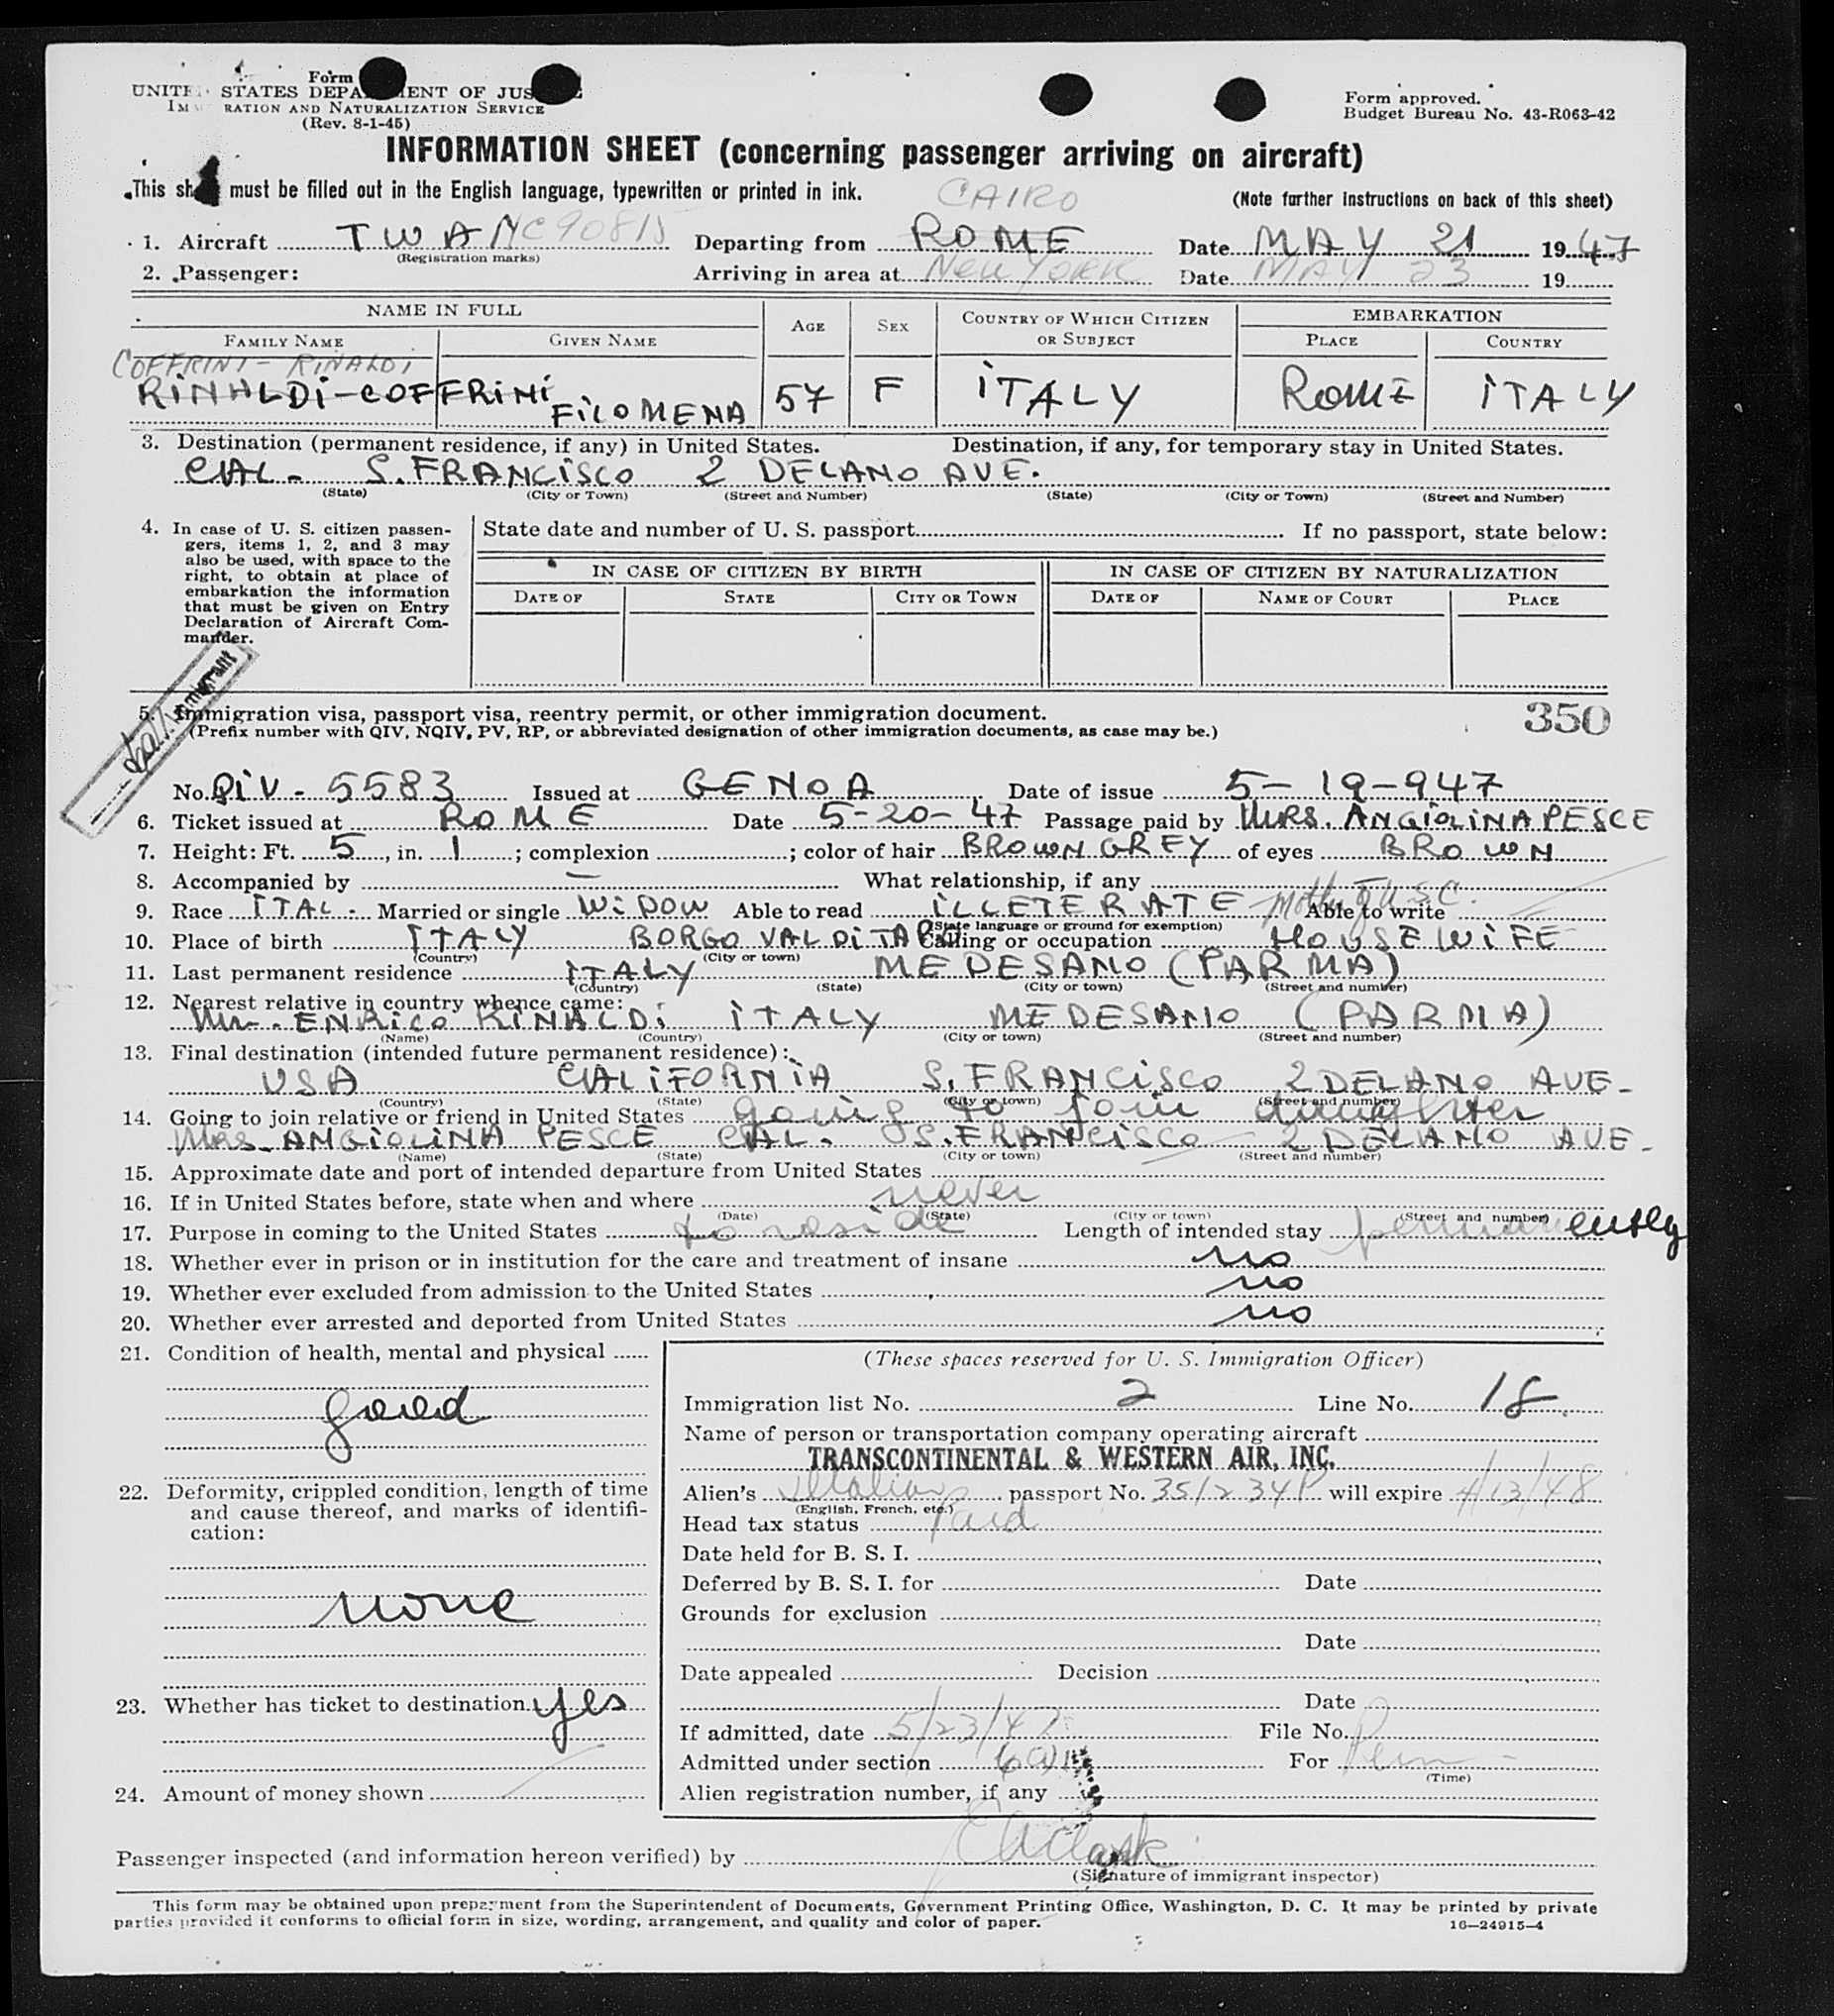 Form
UNITED STATES DEPARTMENT OF JUSTICE
IMMIGRATION AND NATURALIZATION SERVICE
(Rev. 8-1-45)
Form approved.
Budget Bureau No. 43-R063-42
INFORMATION SHEET (concerning passenger arriving on aircraft)
This sheet must be filled out in the English language, typewritten or printed in ink.
(Note further instructions on back of this sheet)
CAIRO
1. Aircraft TWA NC90815 Departing from ROME Date MAY 21 1947
(Registration marks)
2. Passenger: Arriving in area at New York Date MAY 23 19
NAME IN FULL
FAMILY NAME GIVEN NAME AGE SEX COUNTRY OF WHICH CITIZEN OR SUBJECT EMBARKATION PLACE COUNTRY
COFFRINI - RINALDI
RINALDI-COFFRINI FILOMENA 57 F ITALY ROME ITALY
3. Destination (permanent residence, if any) in United States. Destination, if any, for temporary stay in United States.
CAL. S. FRANCISCO 2 DELANO AVE.
(State) (City or Town) (Street and Number) (State) (City or Town) (Street and Number)
4. In case of U. S. citizen passen-
gers, items 1, 2, and 3 may
also be used, with space to the
right, to obtain at place of
embarkation the information
that must be given on Entry
Declaration of Aircraft Com-
mander.
State date and number of U. S. passport If no passport, state below:
IN CASE OF CITIZEN BY BIRTH IN CASE OF CITIZEN BY NATURALIZATION
DATE OF STATE CITY OR TOWN DATE OF NAME OF COURT PLACE
Immigrant
5. Immigration visa, passport visa, reentry permit, or other immigration document.
(Prefix number with QIV, NQIV, PV, RP, or abbreviated designation of other immigration documents, as case may be.)
350
No. QIV - 5583 Issued at GENOA Date of issue 5-19-947
6. Ticket issued at ROME Date 5-20-47 Passage paid by MRS. ANGIOLINA PESCE
7. Height: Ft. 5, in. 1; complexion; color of hair BROWN GREY of eyes BROWN
8. Accompanied by — What relationship, if any
9. Race ITAL. Married or single WIDOW Able to read ILLETERATE Mother of U.S.C. Able to write
(State language or ground for exemption)
10. Place of birth ITALY BORGO VAL DI TARO Calling or occupation HOUSEWIFE
(Country) (City or town)
11. Last permanent residence ITALY MEDESANO (PARMA)
(Country) (State) (City or town) (Street and number)
12. Nearest relative in country whence came:
Mr. ENRICO RINALDI ITALY MEDESANO (PARMA)
(Name) (Country) (City or town) (Street and number)
13. Final destination (intended future permanent residence):
USA CALIFORNIA S. FRANCISCO 2 DELANO AVE-
(Country) (State) (City or town) (Street and number)
14. Going to join relative or friend in United States going to join daughter
MRS. ANGIOLINA PESCE CAL. S. FRANCISCO - 2 DELANO AVE-
(Name) (State) (City or town) (Street and number)
15. Approximate date and port of intended departure from United States
16. If in United States before, state when and where never
(Date) (State) (City or town) (Street and number)
17. Purpose in coming to the United States to reside Length of intended stay permanently
18. Whether ever in prison or in institution for the care and treatment of insane no
19. Whether ever excluded from admission to the United States no
20. Whether ever arrested and deported from United States no
21. Condition of health, mental and physical
good
22. Deformity, crippled condition, length of time
and cause thereof, and marks of identifi-
cation:
none
23. Whether has ticket to destination yes
24. Amount of money shown
(These spaces reserved for U. S. Immigration Officer)
Immigration list No. 2 Line No. 18
Name of person or transportation company operating aircraft
TRANSCONTINENTAL & WESTERN AIR, INC.
Alien's Italian passport No. 351234P will expire 4/13/48
(English, French, etc.)
Head tax status Paid
Date held for B. S. I.
Deferred by B. S. I. for Date
Grounds for exclusion
Date
Date appealed Decision
Date
If admitted, date 5/23/47 File No.
Admitted under section For Perm -
(Time)
Alien registration number, if any
Passenger inspected (and information hereon verified) by
(Signature of immigrant inspector)
This form may be obtained upon prepayment from the Superintendent of Documents, Government Printing Office, Washington, D. C. It may be printed by private
parties provided it conforms to official form in size, wording, arrangement, and quality and color of paper.
16—24915-4